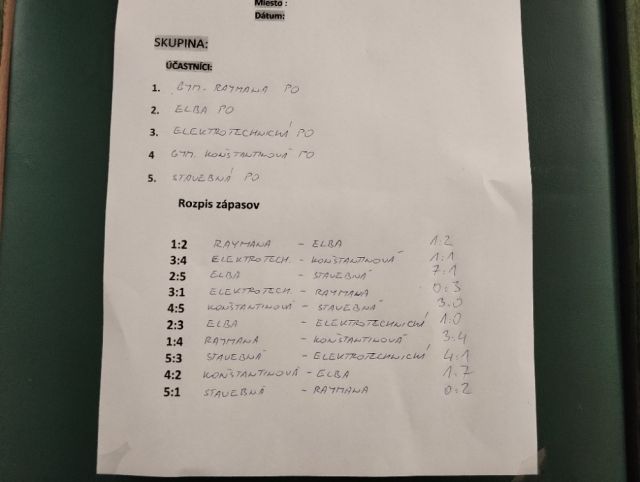 Miesto :
Dátum:
SKUPINA:
ÚČASTNÍCI:
1. GYM. RAYMANA PO
2. ELBA PO
3. ELEKTROTECHNICKÁ PO
4 GYM. KONŠTANTINOVÁ PO
5. STAVEBNÁ PO
Rozpis zápasov
1:2 RAYMANA - ELBA 1:2
3:4 ELEKTROTECH. - KONŠTANTINOVÁ 1:1
2:5 ELBA - STAVEBNÁ 7:1
3:1 ELEKTROTECH. - RAYMANA 0:3
4:5 KONŠTANTINOVÁ - STAVEBNÁ 3:0
2:3 ELBA - ELEKTROTECHNICKÁ 1:0
1:4 RAYMANA - KONŠTANTINOVÁ 3:4
5:3 STAVEBNÁ - ELEKTROTECHNICKÁ 4:1
4:2 KONŠTANTINOVÁ - ELBA 1:7
5:1 STAVEBNÁ - RAYMANA 0:2